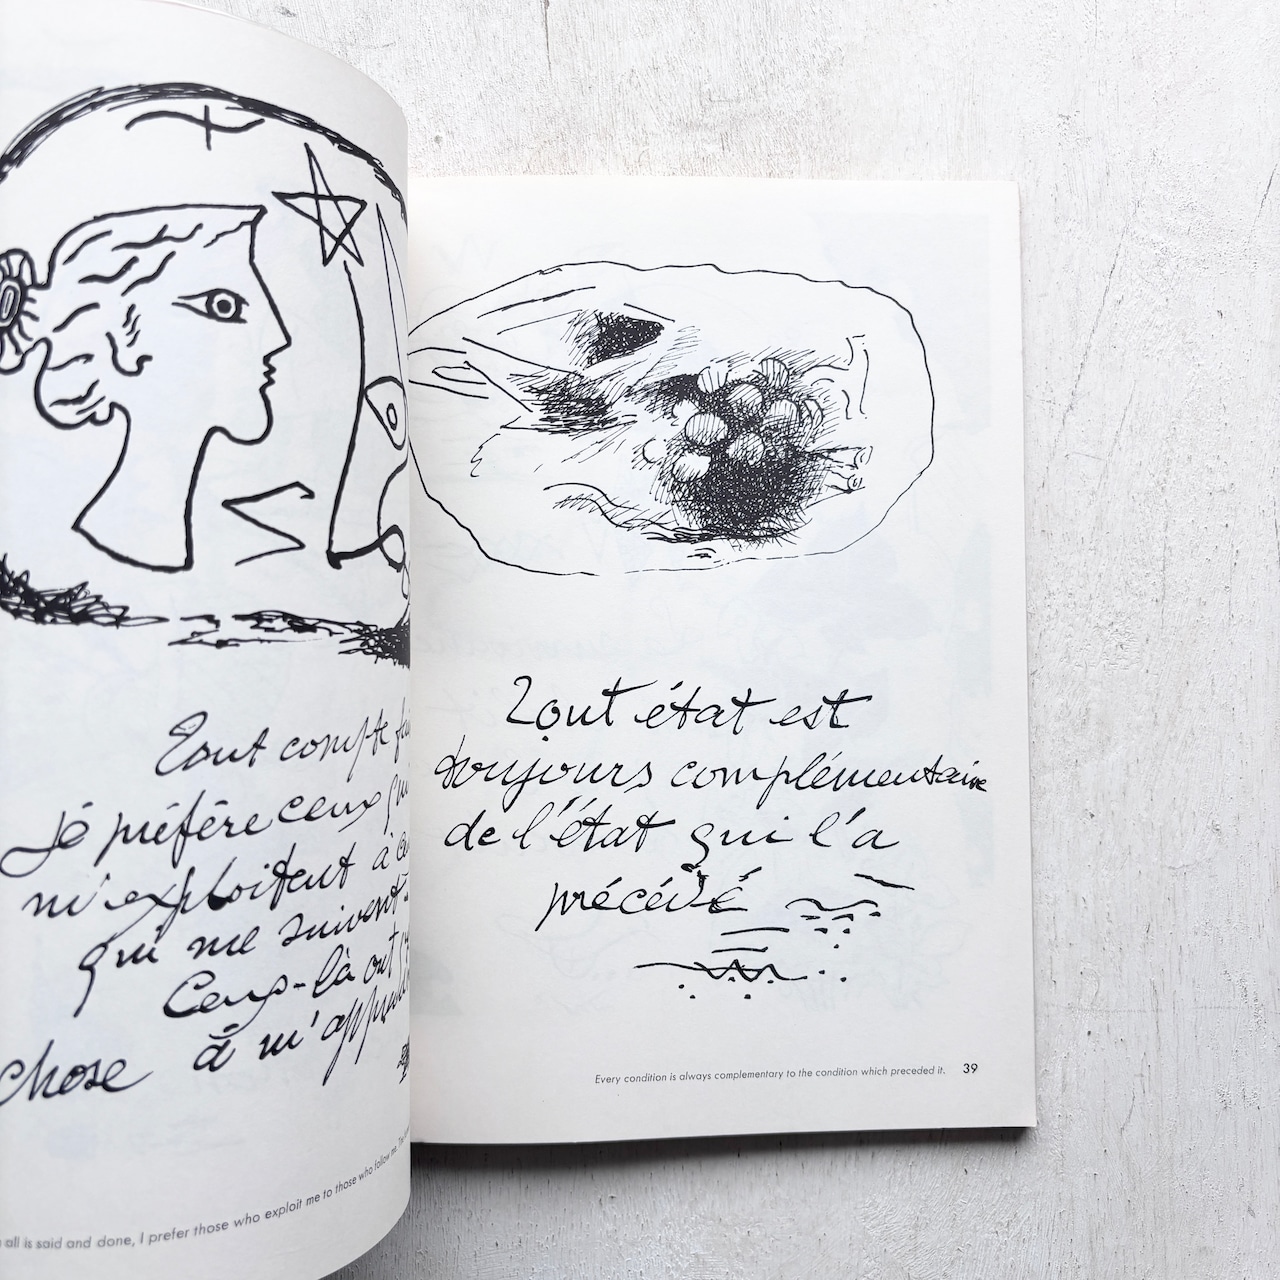 Tout compte
je préfère ceux
m'exploitent à
qui me suivent
Ceux-là ont
à m'apprendre
chose
all is said and done, I prefer those who exploit me to those who follow me.
Tout état est
toujours complémentaire
de l'état qui l'a
précédé
Every condition is always complementary to the condition which preceded it. 39